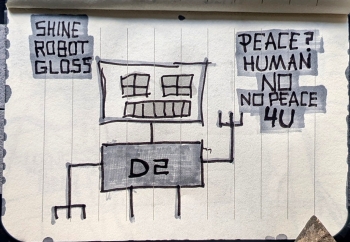 SHINE
ROBOT
GLOSS
PEACE?
HUMAN
NO
NO PEACE
4U
D2